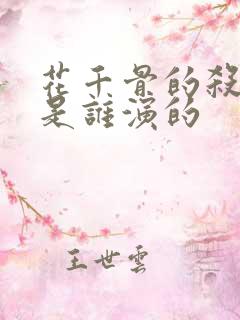 花千骨的殺
是誰演的
王世雲